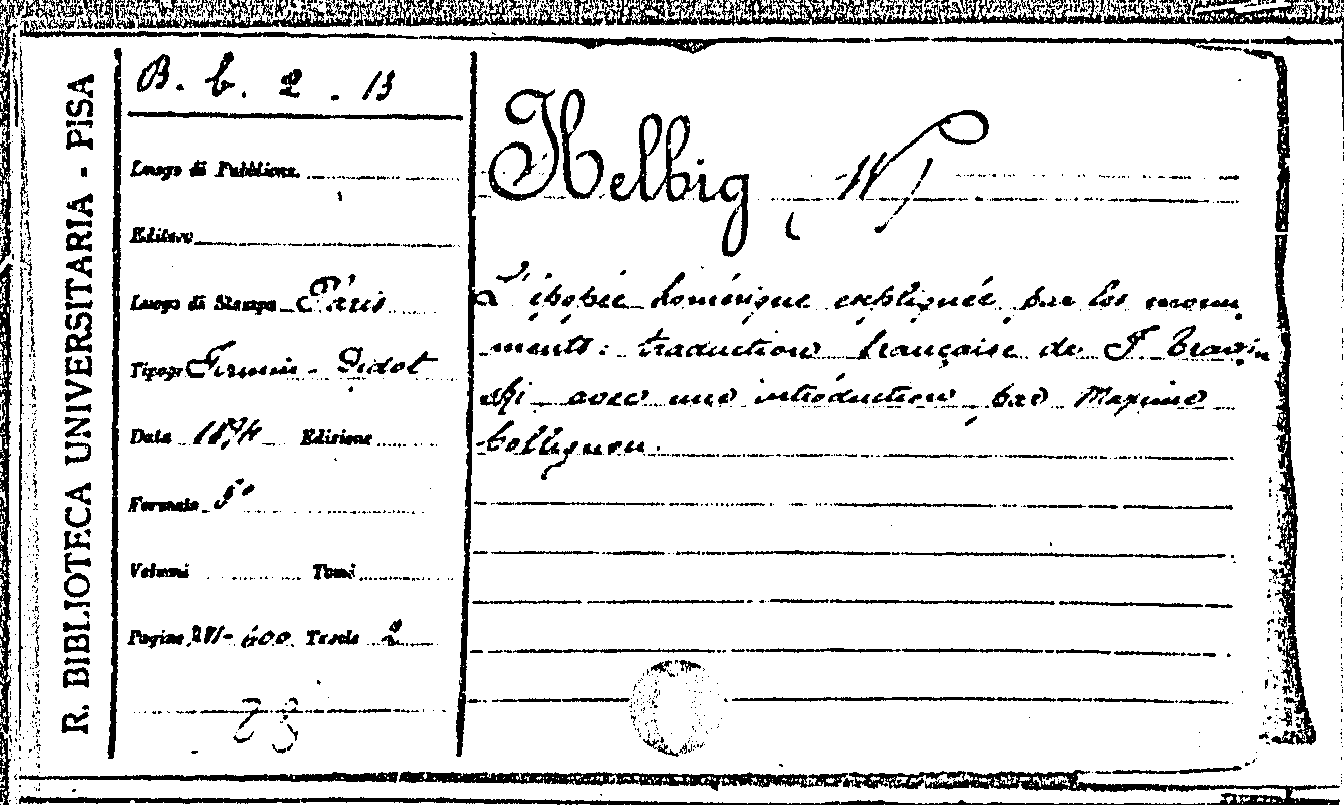 R. BIBLIOTECA UNIVERSITARIA - PISA
B. b. 2 . 13
Luogo di Pubblicaz.
Editore
Luogo di Stampa Paris
Tipogr Firmin - Didot
Data 1894 Edizione
Formato 8°
Volumi Tomi
Pagine XVI - 600 Tavole 2
Helbig, W
L'épopée homérique expliquée par les monu
ments: traduction française de F. Trawin
ski avec une introduction par Maxime
Collignon.